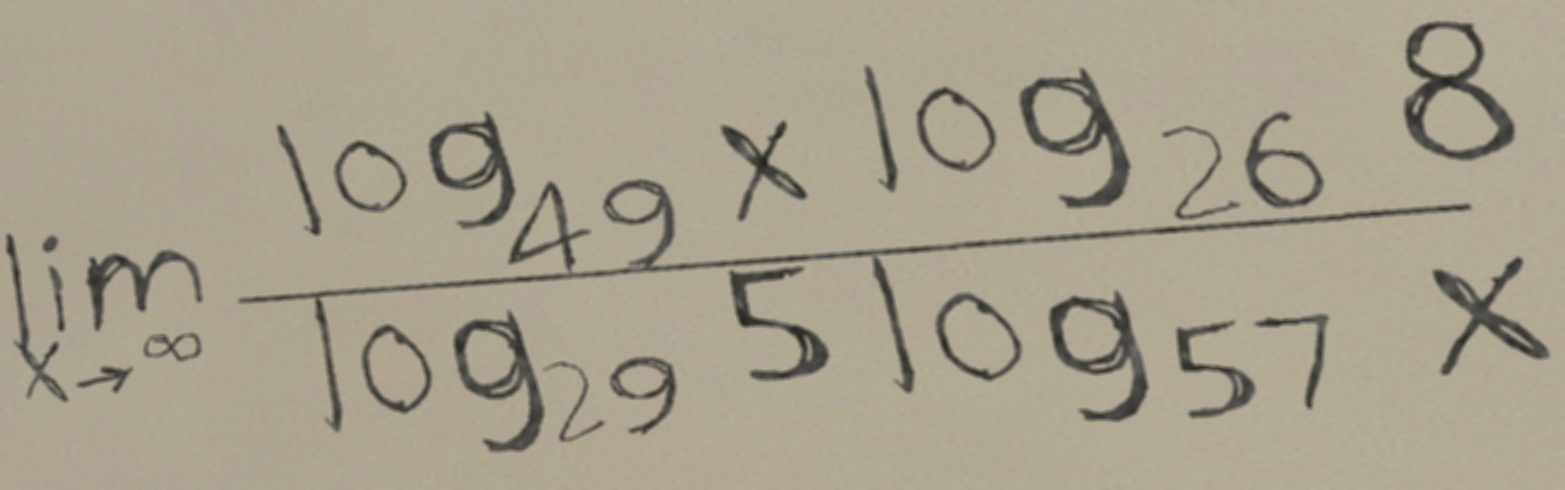 \lim_{x \to \infty} \frac{\log_{49} x \log_{26} 8}{\log_{29} 5 \log_{57} x}